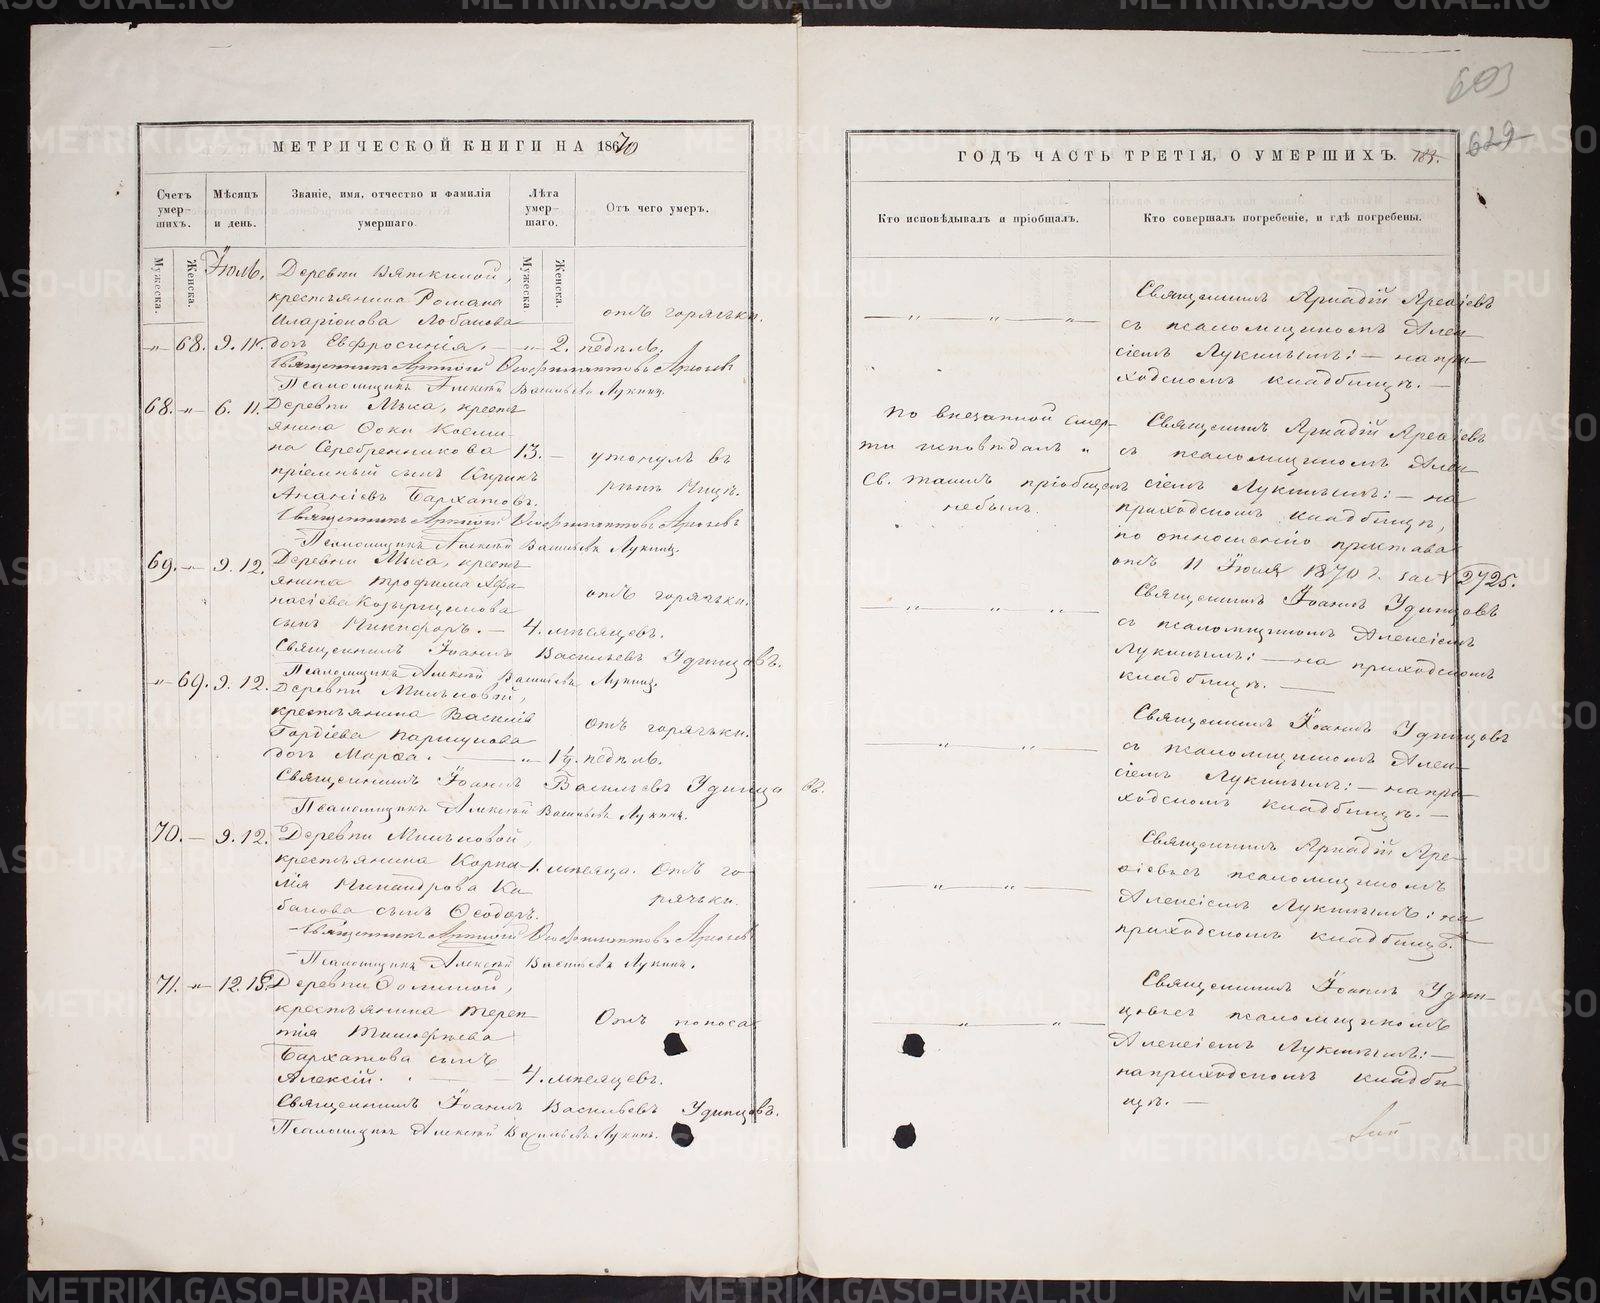 МЕТРИЧЕСКОЙ КНИГИ НА 1870
Счетъ умер-шихъ.
Мѣсяцъ и день.
Званіе, имя, отчество и фамилія умершаго.
Лѣта умер-шаго.
Отъ чего умеръ.
Мужеска.
Женска.
Мужеска
Женска.
Іюль.
Деревни Вяткиной,
крестьянина Романа
Иларіонова Лобанова
отъ горячки.
„ 68. 9. 11. дочь Евфросинія. — „ 2. недѣль.
Священникъ
Псаломщикъ Алексѣй Васильевъ Лукинъ.
68. — „ 6. 11. Деревни Мыса, кресть
янина Оски Косми-
на Серебренникова 13. — утонулъ въ
пріемный сынъ Кирикъ рѣкѣ Ницѣ.
Ананіевъ Бархатовъ.
Священникъ
Псаломщикъ Алексѣй Васильевъ Лукинъ.
69. — „ 9. 12. Деревни Мыса, кресть
янина Трофима Афа-
насіева отъ горячки.
сынъ Никифоръ. — 4. мѣсяцевъ.
Священникъ Іоаннъ Васильевъ Удинцовъ.
Псаломщикъ Алексѣй Васильевъ Лукинъ.
„ 69. 9. 12. Деревни
крестьянина Василія
Гордіева отъ горячки.
дочь Марѳа. — „ 1½. недѣль.
Священникъ Іоаннъ Васильевъ Удинцовъ.
Псаломщикъ Алексѣй Васильевъ Лукинъ.
70. — 9. 12. Деревни
крестьянина Корни-
лія Никандрова Ка-
банова сынъ Ѳеодоръ.
1. мѣсяца. Отъ го-
рячки.
Священникъ
Псаломщикъ Алексѣй Васильевъ Лукинъ.
71. — „ 12. 13. Деревни Ѳоминой,
крестьянина Терен-
тія Тимофѣева
Бархатова сынъ
Отъ поноса
Алексій. — 4. мѣсяцевъ.
Священникъ Іоаннъ Васильевъ Удинцовъ.
Псаломщикъ Алексѣй Васильевъ Лукинъ.
603
629
ГОДЪ ЧАСТЬ ТРЕТІЯ, О УМЕРШИХЪ.
Кто исповѣдывалъ и пріобщалъ.
Кто совершалъ погребеніе, и гдѣ погребены.
Священникъ Аркадій Арефіевъ
съ псаломщикомъ Алек-
сіемъ Лукинымъ: — на при-
ходскомъ кладбищѣ. —
По внезапной смер-
ти исповѣданъ и
Св. таинъ пріобщенъ
небылъ.
Священникъ Аркадій Арефіевъ
съ псаломщикомъ Алек-
сіемъ Лукинымъ: — на
приходскомъ кладбищѣ,
по отношенію пристава
отъ 11 Іюля 1870 г. за № 2725.
Священникъ Іоаннъ Удинцовъ
съ псаломщикомъ Алексіемъ
Лукинымъ: — на приходскомъ
кладбищѣ. —
Священникъ Іоаннъ Удинцовъ
съ псаломщикомъ Алек-
сіемъ Лукинымъ: — на при-
ходскомъ кладбищѣ. —
Священникъ Аркадій Аре-
фіевъ съ псаломщикомъ
Алексіемъ Лукинымъ: на
приходскомъ кладбищѣ.
Священникъ Іоаннъ Удин-
цовъ съ псаломщикомъ
Алексіемъ Лукинымъ: —
на приходскомъ кладби-
щѣ. —
METRIKI.GASO-URAL.RU